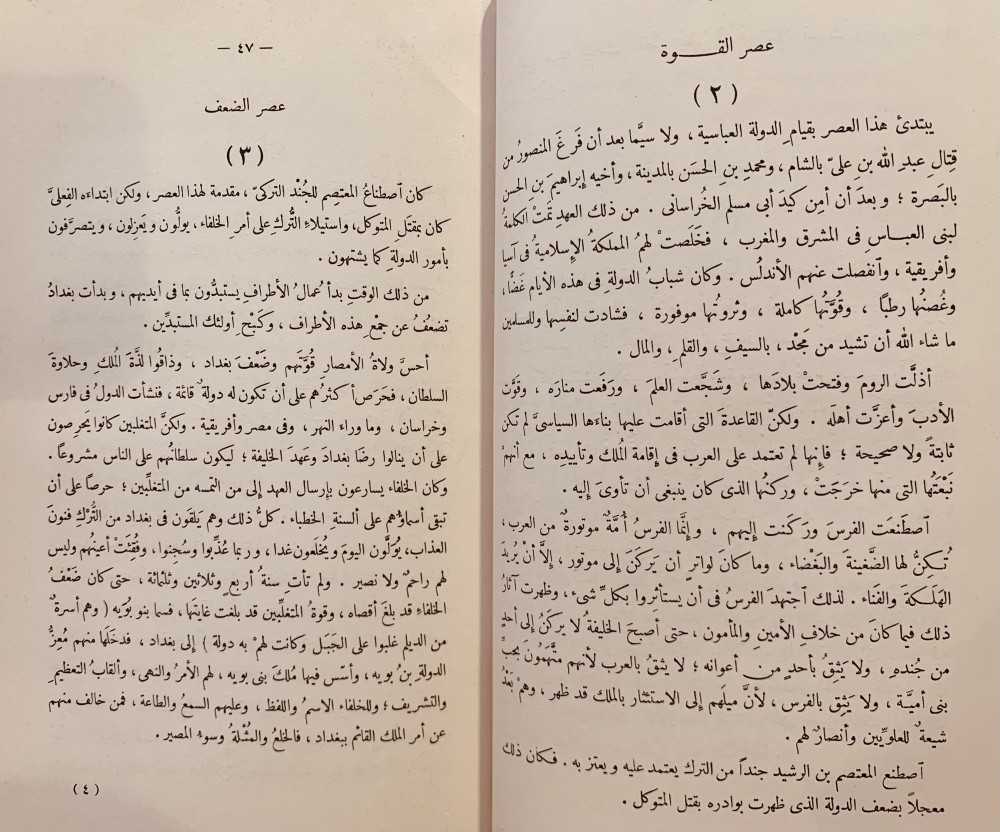 عصر القــــوة
( ٢ )
يبتدئ هذا العصر بقيام الدولة العباسية ، ولا سيَّما بعد أن فَرغَ المنصورُ من
قِتالِ عبدِ الله بن علىّ بالشام ، ومحمدِ بنِ الحسَن بالمدينة ، وأخيه إبراهيمَ بنِ الحسن
بالبَصرة ؛ وبعدَ أن أمِن كيدَ أبى مسلم الخُراسانى . من ذلك العهدِ تمَّت الكلمةُ
لبنى العباس فى المشرق والمغرب ، فخَلَصتْ لهمُ المملكةُ الإسلاميةُ فى آسيا
وأفريقية ، وآنفصلت عنهم الأندلُس . وكان شبابُ الدولةِ فى هذه الأيام غَضًّا ،
وغُصنُها رطبًا ، وقُوَّتُها كاملة ، وثروتُها موفورة ، فشادت لنفسِها وللمسلمين
ما شاء الله أن تشيد من مَجْد ، بالسيفِ ، والقلمِ ، والمال .
أذلَّت الرومَ وفتحتْ بلادَها ، وشَجَّعت العلمَ ، ورَفَعت منارَه ، وقوَّت
الأدبَ وأعزَّت أهلَه . ولكنَّ القاعدةَ التى أقامت عليها بناءَها السياسىَّ لم تكن
ثابتةً ولا صحيحة ؛ فإنها لم تعتمد على العرب فى إقامة المُلك وتأييدِه ، مع أنهمْ
نَبْعَتُها التى منها خرَجَتْ ، وركنُها الذى كان ينبغى أن تأوىَ إليه .
آصطَنَعت الفرسَ ورَكَنت إليهم ، وإنَّما الفرسُ أُمَّةٌ موتورةٌ من العرب ،
تُكنُّ لها الضَّغينةَ والبَغْضاء ، وما كانَ لواترٍ أن يَركَنَ إلى موتور ، إلاَّ أنْ يُريدَ
الهَلَكةَ والفَناء . لذلك آجتهدَ الفرسُ فى أن يستأثروا بكلِّ شىء ، وظهرت آثارُ
ذلك فيما كانَ من خلافِ الأمينِ والمأمون ، حتى أصبحَ الخليفةُ لا يركَنُ إلى أحدٍ
من جُندِه ، ولا يَثِقُ بأحدٍ من أعوانه ؛ لا يثقُ بالعرب لأنهم متَّهَمونَ بحبِّ
بنى أميَّة ، ولا يَثِق بالفرس ، لأنَّ ميلَهم إلى الاستئثار بالملك قد ظهر ، وهمْ بَعْدُ
شيعةٌ للعلويِّين وأنصارٌ لهم .
آصطنع المعتصم بن الرشيد جنداً من الترك يعتمد عليه ويعتز به . فكان ذلك
معجلاً بضعف الدولة الذى ظهرت بوادره بقتل المتوكل .
— ٤٧ —
عصر الضعف
( ٣ )
كان آصطناعُ المعتصم للجُنْد التركىّ ، مقدمة لهذا العصر ، ولكن ابتداءَه الفعلىَّ
كان بمقتَلِ المتوكل ، واستيلاءِ التُّركِ على أمرِ الخلفاء ، يولُّون ويَعزِلون ، ويتصرَّفون
بأمور الدولةِ كما يشتهون .
من ذلك الوقتِ بدأَ عُمالُ الأطرافِ يستبدُّون بما فى أيديهم ، وبدأت بغدادُ
تضعُفُ عن جمْعِ هذه الأطراف ، وكَبْحِ أولئك المستبدِّين .
أحسَّ ولاةُ الأمصار قُوَّتَهم وضَعْفَ بغداد ، وذاقُوا لذَّةَ المُلكِ وحلاوةَ
السلطان ، فحَرَصَ أكثرُهم على أن تكون له دولةٌ قائمة ، فنشأت الدولُ فى فارس
وخراسان ، وما وراءَ النهر ، وفى مصر وأفريقية . ولكنَّ المتغلبين كانوا يحرِصون
على أن ينالوا رضَا بغدادَ وعَهدَ الخليفة ؛ ليكون سلطانُهم على الناس مشروعاً .
وكان الخلفاء يسارعون بإرسال العهد إلى من التمسه من المتغلِّبين ؛ حرصاً على أن
تبقى أسماؤُهم على ألسنةِ الخطباء . كلُّ ذلك وهم يَلقَون فى بغداد من التُّركِ فنونَ
العذاب، يُوَلَّون اليومَ ويُخلَعون غدا ، وربما عُذِّبوا وسُجِنوا، وفُقِئَتْ أعينُهم وليس
لهم راحمٌ ولا نصير . ولم تأتِ سنةُ أربعٍ وثلاثين وثلثائة ، حتى كان ضَعْفُ
الخلفاءِ قد بلغ أقصاه ، وقوةُ المتغلِّبين قد بلغت غايتَها، فسما بنو بُوَيه ( وهم أسرةٌ
من الديلم غلبوا على الجَبَل وكانت لهمْ به دولة ) إلى بغداد ، فدخَلَها منهم مُعِزُّ
الدولةِ بنُ بُويه ، وأسَّس فيها مُلكَ بنى بويه ، لهم الأمرُ والنهى ، وألقابُ التعظيمِ
والتشريف ؛ وللخلفاء الاسمُ واللفظ ، وعليهم السمعُ والطاعة ، فمن خالف منهم
عن أمر الملك القائم ببغداد ، فالخلعُ والمُثْلةُ وسوءُ المصير .
( ٤ )